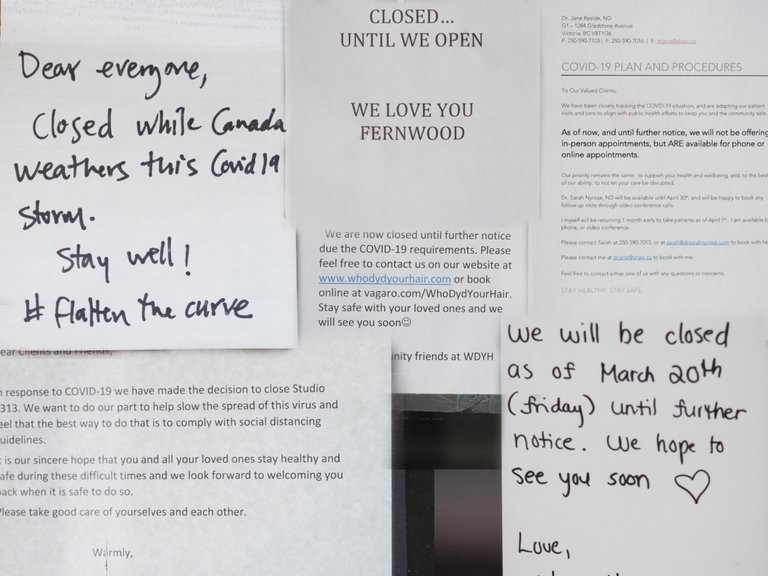 Dear everyone,
Closed while Canada
weathers this Covid19
storm.
Stay well!
# flatten the curve
CLOSED...
UNTIL WE OPEN
WE LOVE YOU
FERNWOOD
Dr. Jane Reside, ND
G1 – 1284 Gladstone Avenue
Victoria, BC V8T1G6
P: 250-590-7105 | F: 250-590-7016 | E: drjane@shaw.ca
COVID-19 PLAN AND PROCEDURES
To Our Valued Clients,
We have been closely tracking the COVID-19 situation, and are adapting our patient
visits and care to align with public health efforts to keep you and the community safe.
As of now, and until further notice, we will not be offering
in-person appointments, but ARE available for phone or
online appointments.
Our priority remains the same: to support your health and wellbeing, and, to the best
of our ability, to not let your care be disrupted.
Dr. Sarah Nyrose, ND will be available until April 30th, and will be happy to book any
follow up visits through video conference calls.
I myself will be returning 1 month early to take patients as of April 1st. I am available by
phone, or video conference.
Please contact Sarah at 250-590-7015, or at sarah@drsarahnyrose.com to book with
Please contact me at drjane@shaw.ca to book with me.
Feel free to contact either one of us with any questions or concerns.
STAY HEALTHY. STAY SAFE.
We are now closed until further notice
due the COVID-19 requirements. Please
feel free to contact us on our website at
www.whodydyourhair.com or book
online at vagaro.com/WhoDydYourHair.
Stay safe with your loved ones and we
will see you soon☺
nity friends at WDYH
ear Clients and Friends,
n response to COVID-19 we have made the decision to close Studio
313. We want to do our part to help slow the spread of this virus and
eel that the best way to do that is to comply with social distancing
uidelines.
t is our sincere hope that you and all your loved ones stay healthy and
afe during these difficult times and we look forward to welcoming you
ack when it is safe to do so.
Please take good care of yourselves and each other.
Warmly,
We will be closed
as of March 20th
(friday) until further
notice. We hope to
see you soon ♡
Love,